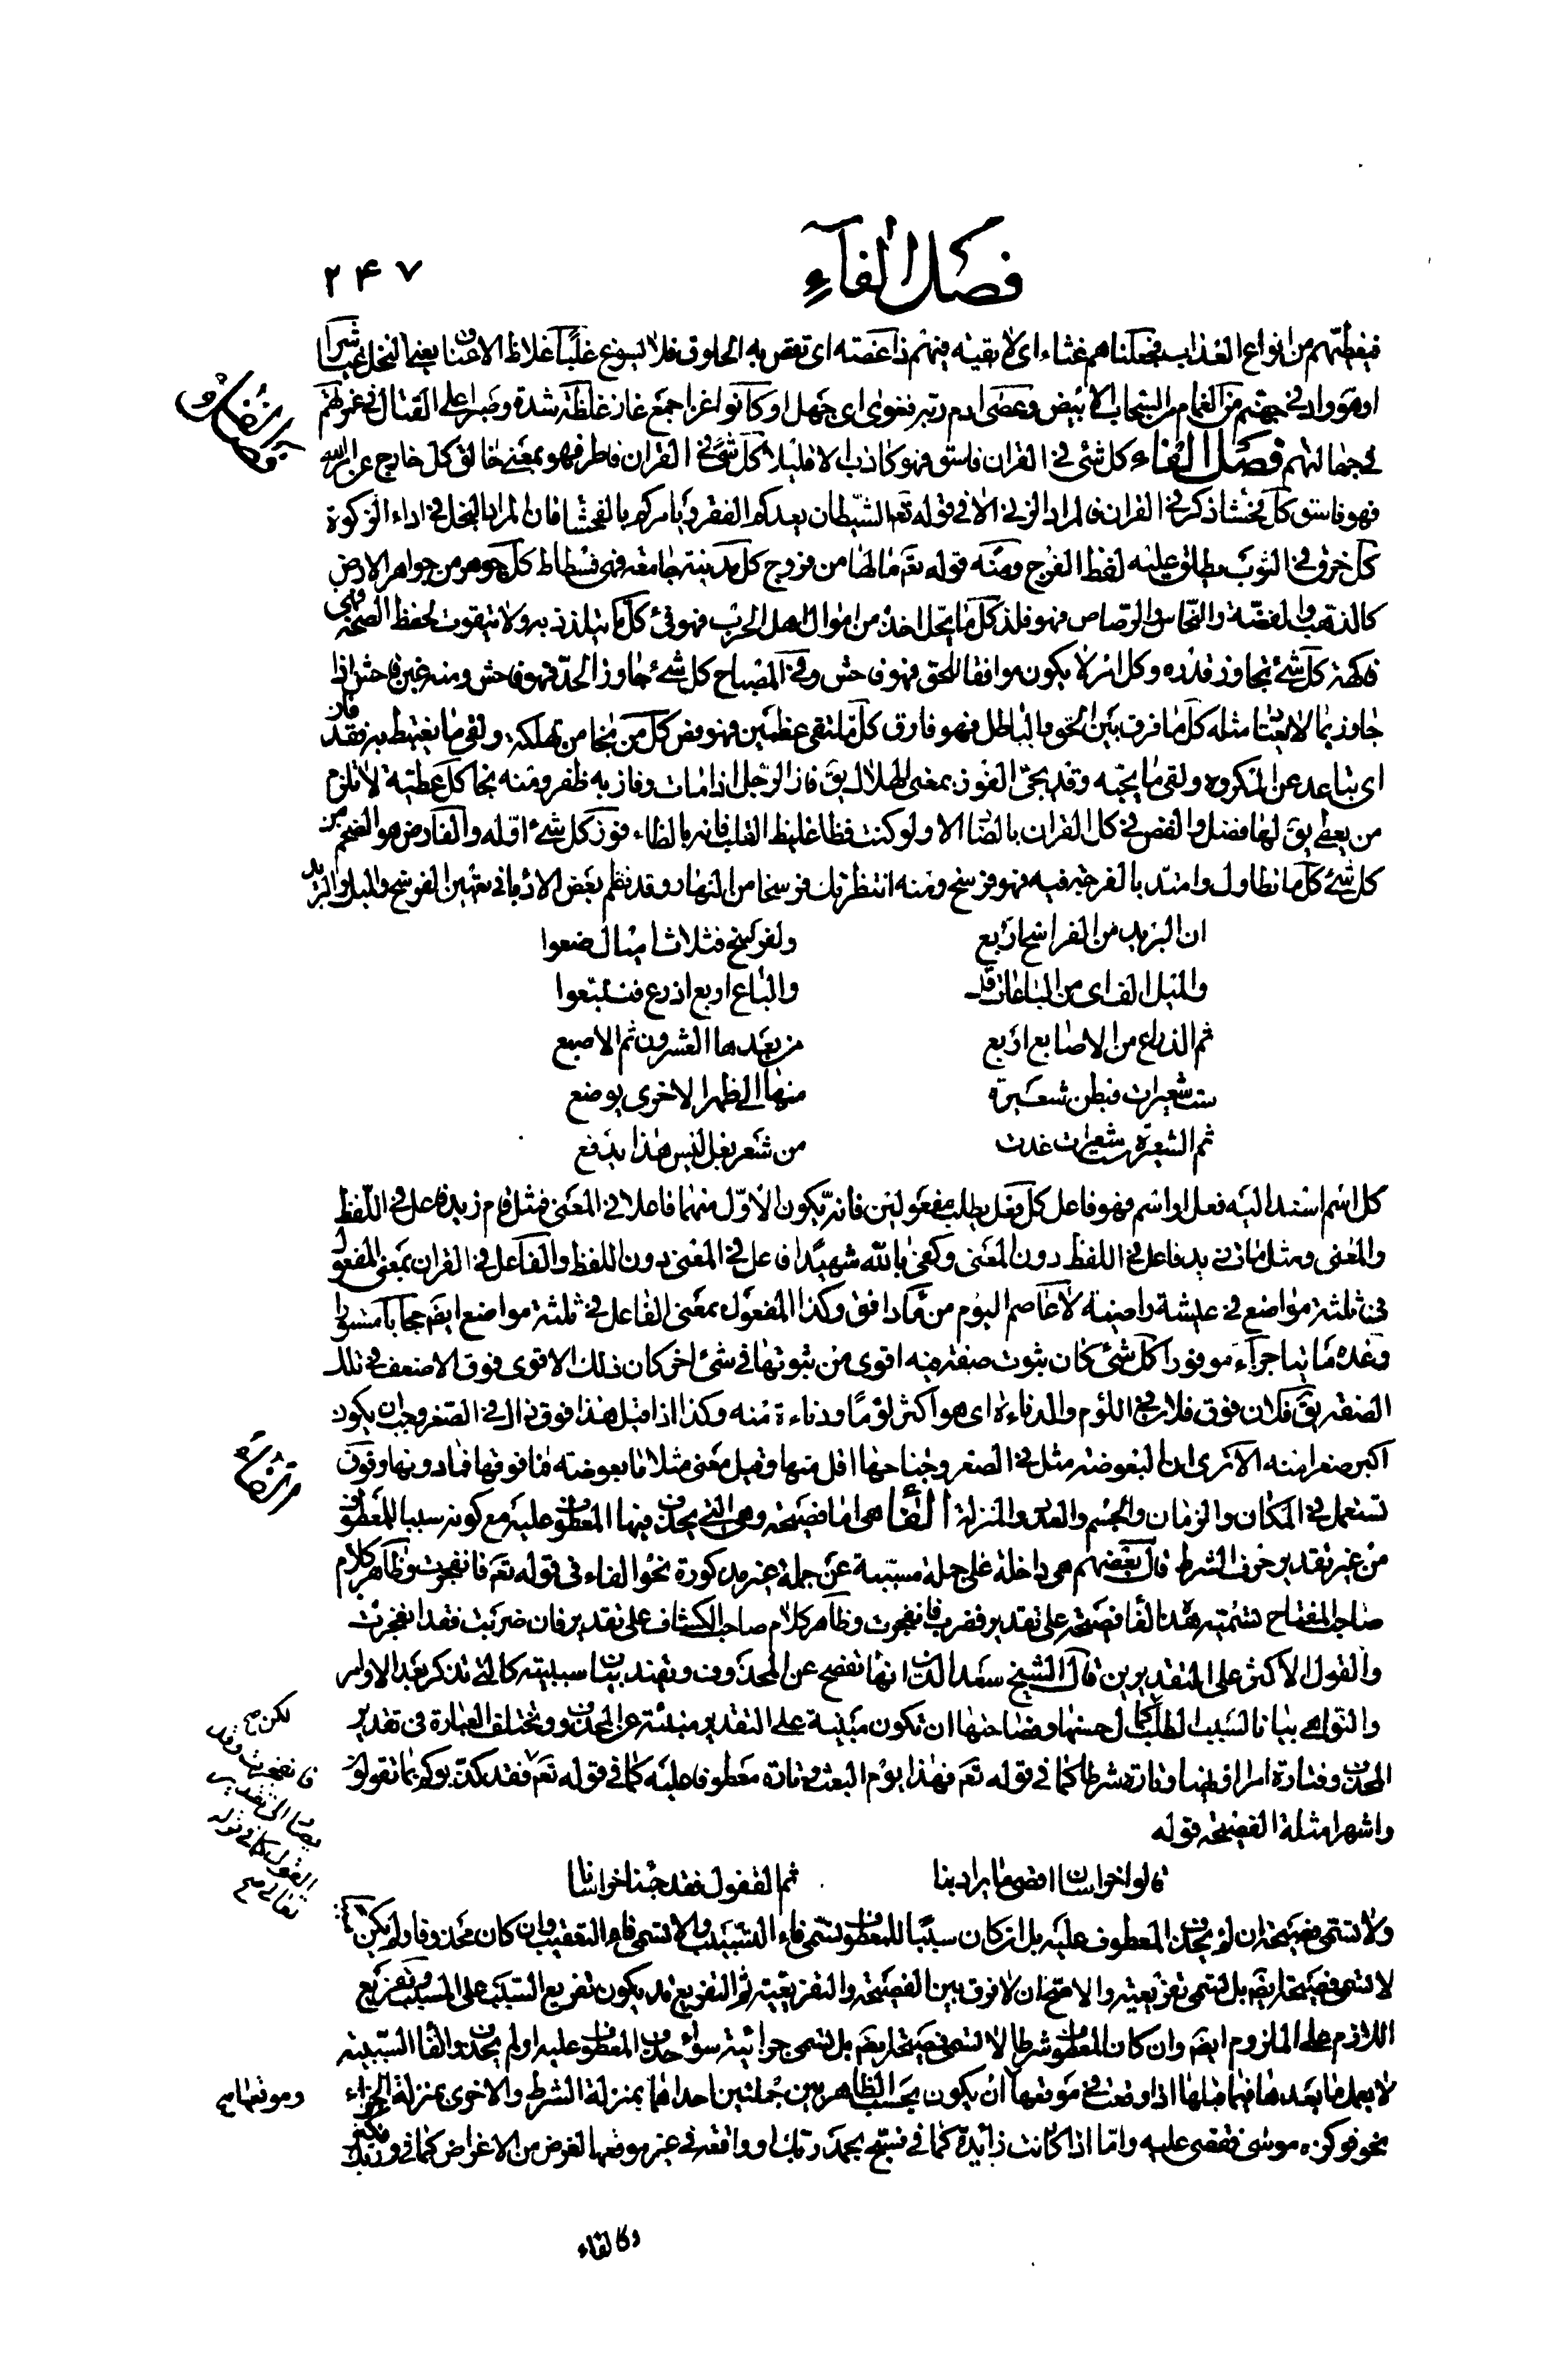 فصل الفآء
۲۴۷
فيغطيهم من انواع العذاب فجعلناهم غثاء اى لا بقية فيهم ذا غصة اى تغص به الحلوق فلا يسوغ غلبًا غلاظ الاعناق يعنى النخل غيا شرا
او هو واد فى جهنم من الغمام من السحاب الابيض وعصى ادم ربه فغوى اى جهل او كانوا غزا جمع غاز غلظة شدة وصبرا على القتال فى غمرتهم
فى جهالتهم فصل الفاء كل شئ فى القران فاسق فهو كاذب الا قليلا كل شئ فى القران فاطر فهو بمعنى خالق كل خارج عن امر الله
فهو فاسق كل فحشا ذكر فى القران فالمراد الزنى الا فى قوله تعم الشيطان يعدكم الفقر ويامركم بالفحشا فان المراد البخل فى اداء الزكوة
كل خرق فى الثوب يطلق عليه لفظ الفرج ومنه قوله تعم مالها من فروج كل مدينة جامعة فهى فسطاط كل جوهر من جواهر الارض
كالذهب والفضة والنحاس والرصاص فهو فلذ كل ما يحل اخذه من اموال اهل الحرب فهو فئ كل ما يتلذذ به ولا يتقوت لحفظ الصحة فهى
فاكهة كل شئ تجاوز قدره وكل امر لا يكون موافقا للحق فهو فاحش وفى المصباح كل شئ جاوز الحد فهو فاحش ومنه غبن فاحش اذا
جاوز بما لا يعتاد مثله كل ما فرق بين الحق والباطل فهو فارق كل ملتقى عظمين فهو فص كل من نجا من تهلكة ولقى ما يغتبط به فقد فاز
اى تباعد عن المكروه ولقى ما يحبه وقد يجئ الفوز بمعنى الهلاك يق فاز الرجل اذا مات وفاز به ظفر ومنه نجا كل عطية لا تلزم
من يعطى يق لها فضل والفض فى كل القران بالضا الا ولو كنت فظا غليظ القلب فانه بالظاء فوز كل شئ اوله والفارض هو الضخم من
كل شئ كل ما تطاول وامتد بالفرجة فيه فهو فرسخ ومنه انتظرتك فرسخا من النهار وقد نظم بعض الادباء فى تعيين الفرسخ والميل والبريد
ان البريد من الفراسخ اربع
ولفرسخ فثلاث اميال ضعوا
والميل الف اى من الباعات قل
والباع اربع اذرع فتتبعوا
ثم الذراع من الاصابع اربع
من بعدها العشرون ثم الاصبع
ست شعيرات فبطن شعيرة
منها الى ظهر لاخرى يوضع
ثم الشعيرة ست شعيرات غدت
من شعر بغل ليس هذا يدفع
كل اسم اسند اليه فعل او اسم فهو فاعل كل فعل يطلب مفعولين فانه يكون الاول منهما فاعلا فى المعنى فمثل قام زيد فاعل فى اللفظ
والمعنى ومثل مات زيد فاعل فى اللفظ دون المعنى وكفى بالله شهيدا فاعل فى المعنى دون اللفظ والفاعل فى القران بمعنى المفعول
فى ثلثة مواضع فى عيشة راضية لا عاصم اليوم من ماء دافق وكذا المفعول بمعنى الفاعل فى ثلثة مواضع ايضم حجابا مستورا
وعده ماتيا جزآء موفورا كل شئ كان ثبوت صفة فيه اقوى من ثبوتها فى شئ اخر كان ذلك الاقوى فوق الاضعف فى تلك
الصفة يق فلان فوق فلان فى اللؤم والدناءة اى هو اكثر لؤما ودناءة منه وكذا اذا قيل هذا فوق ذاك فى الصغر وجب ان يكون
اكبر صغرا منه الا ترى ان البعوضة مثل فى الصغر وجناحها اقل منها وقيل معنى مثلا ما بعوضة فما فوقها فما دونها وفوق
تستعمل فى المكان والزمان والجسم والعدد والمنزلة الفا هى اما فصيحة وهى التى يحذف فيها المعطوف عليه مع كونه سببا للمعطوف
من غير تقدير حرف الشرط قال بعضهم هى داخلة على جملة مسببة عن جملة غير مذكورة نحو الفاء فى قوله تعم فانفجرت وظاهر كلام
صاحب المفتاح تسمية هذه الفا فصيحة على تقدير فضرب فانفجرت وظاهر كلام صاحب الكشاف على تقدير فان ضربت فقد انفجرت
والقول الاكثر على التقديرين قال الشيخ سعد الدين انها تفصح عن المحذوف وتفيد بيان سببيته كالتى تذكر بعد الاوامر
والنواهى بيانا لسبب الطلب لكمال حسنها وفصاحتها ان تكون مبنية على التقدير منبئة عن المحذوف وتختلف العبارة فى تقدير
المحذوف فتارة امرا او نهيا وتارة شرطا كما فى قوله تعم فهذا يوم البعث وتارة معطوفا عليه كما فى قوله تعم فقد كذبوكم بما تقولون
واشهر امثلة الفصيحة قوله
قالوا خراسان اقصى ما يراد بنا
ثم القفول فقد جئنا خراسانا
ولا تسمى فصيحة ان لم يحذف المعطوف عليه بل ان كان سببا للمعطوف تسمى فاء التسبيب والا تسمى فاء التعقيب وان كان محذوفا ولم يكن
لا تسمى فصيحة ايضم بل تسمى تفريعية والاصح ان لا فرق بين الفصيحة والتفريعية ثم التفريع قد يكون تفريع السبب على المسبب وتفريع
اللازم على الملزوم ايضم وان كان المعطوف شرطا لا تسمى فصيحة ايضم بل تسمى جزائية سواء حذف المعطوف عليه او لم يحذف والفا السببية
لا يعمل ما بعدها فيما قبلها اذا وقعت فى موقعها ان يكون بحسب الظاهر بين جملتين احداهما بمنزلة الشرط والاخرى بمنزلة الجزاء
نحو فوكزه موسى فقضى عليه واما اذا كانت زائدة كما فى فسبح بحمد ربك او واقعة فى غير موقعها لغرض من الاغراض كما فى وربك فكبر
لكن
فانفجرت
وموقعها
وكالفاء